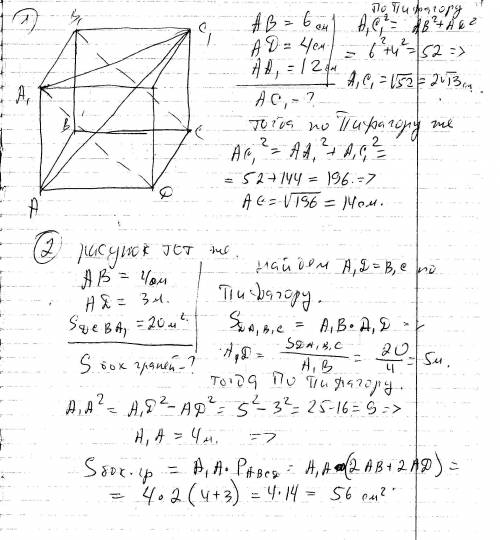 1)
B₁
C₁
A₁
B
C
A
D
AB = 6 см
AD = 4 см
AA₁ = 12 см
AC₁ - ?
по Пифагору
A₁C₁² = AB² + AD²
= 6² + 4² = 52 =>
A₁C₁ = √52 = 2√13 см
Тогда по Пифагору же
AC₁² = AA₁² + A₁C₁² =
= 52 + 144 = 196. =>
AC = √196 = 14 см.
2 рисунок тот же.
AB = 4 см
AD = 3 м.
S DCBA₁ = 20 м².
S бок граней - ?
найдем A₁D = B₁C по
Пифагору.
S DA₁B₁C = A₁B · A₁D =
A₁D = S DA₁B₁C / A₁B = 20/4 = 5 м.
Тогда по Пифагору.
A₁A² = A₁D² - AD² = 5² - 3² = 25 - 16 = 9 =>
A₁A = 4 м. =>
S бок. гр = A₁A · P ABCD = A₁A (2AB + 2AD) =
= 4 · 2 (4 + 3) = 4 · 14 = 56 см².